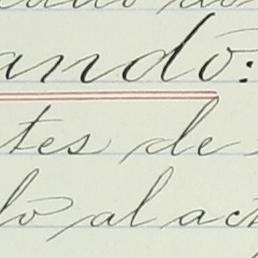 ando:
tes de
lo al act